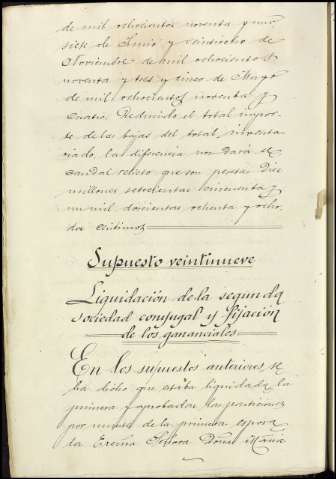 de mil ochocientos noventa y uno
siete de Junio y veintiocho de
Noviembre de mil ochocientos
noventa y tres y cinco de Mayo
de mil ochocientos noventa y
cuatro. Reducido el total impor
te de las bajas del total inventa
riado, la diferencia nos dará el
caudal relicto que son pesetas Diez
millones setecientas cincuenta y
un mil doscientas ochenta y ocho
dos céntimos
Supuesto veintinueve
Liquidación de la segunda
sociedad conyugal y fijacion
de los gananciales
En los supuestos anteriores, se
ha dicho que estaba liquidada la
primera y aprobadas las particiones
por muerte de la primera esposa
la Excma Señora Doña Maria